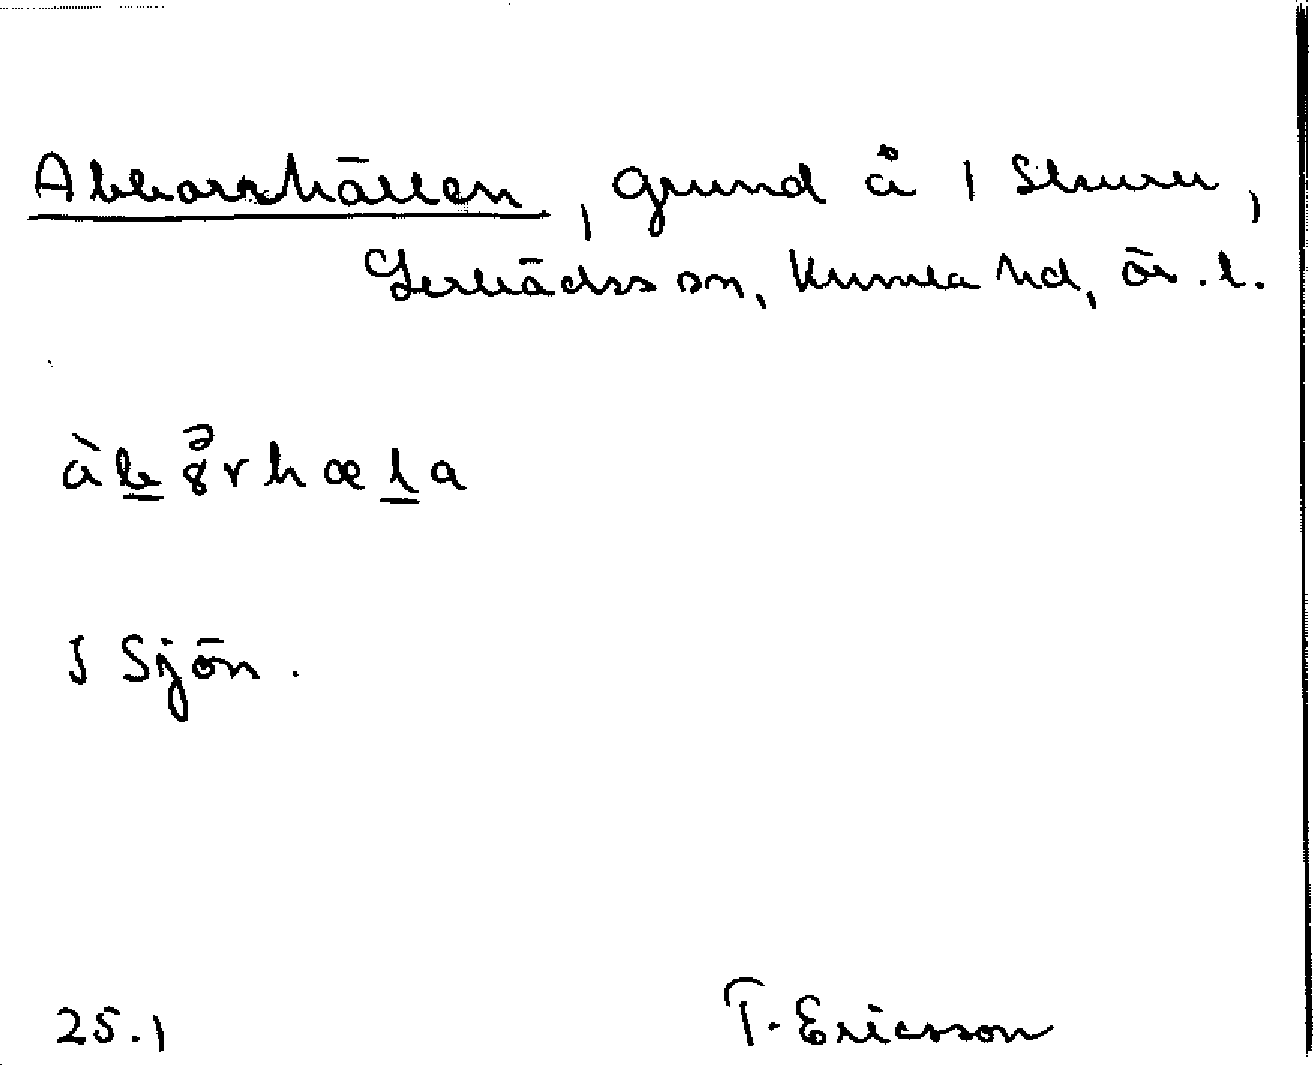 Abborrhällen, grund å 1 Skuru,
Lerbäcks sn, Kumla hd, Ör. l.
àbə̄rhæla
I Sjön.
25.1 T. Ericsson